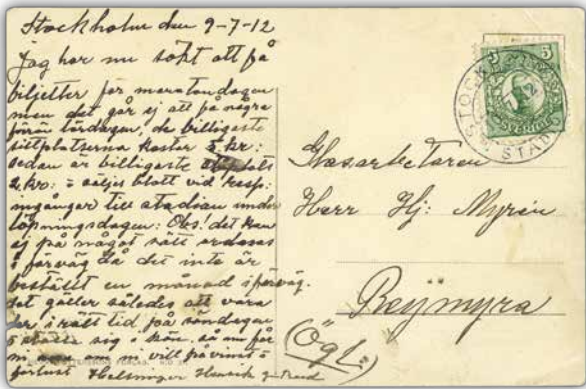 Stockholm den 9-7-12
Jag har nu sökt att få
biljetter för maratondagen
men det går ej att få några
förrän lördagen, de billigaste
sittplatserna kostar 5 kr:
sedan är billigaste ståplats
2 kro: o säljes blott vid resp:
ingångar till stadion under
löpningsdagen: Obs! det kan
ej på något sätt ordnas
i förväg då det inte är
beställt en månad i förväg.
det gäller således att vara
här i rätt tid på söndagen
o ställa sig i kön. så nu får
ni om ni vill på vinst o
förlust Helsningar Henrik
STOCKHOLM
STAD
5 5
SVERIGE
Glasarbetaren
Herr Hj: Myrén
Reijmyra
(Ögl.)